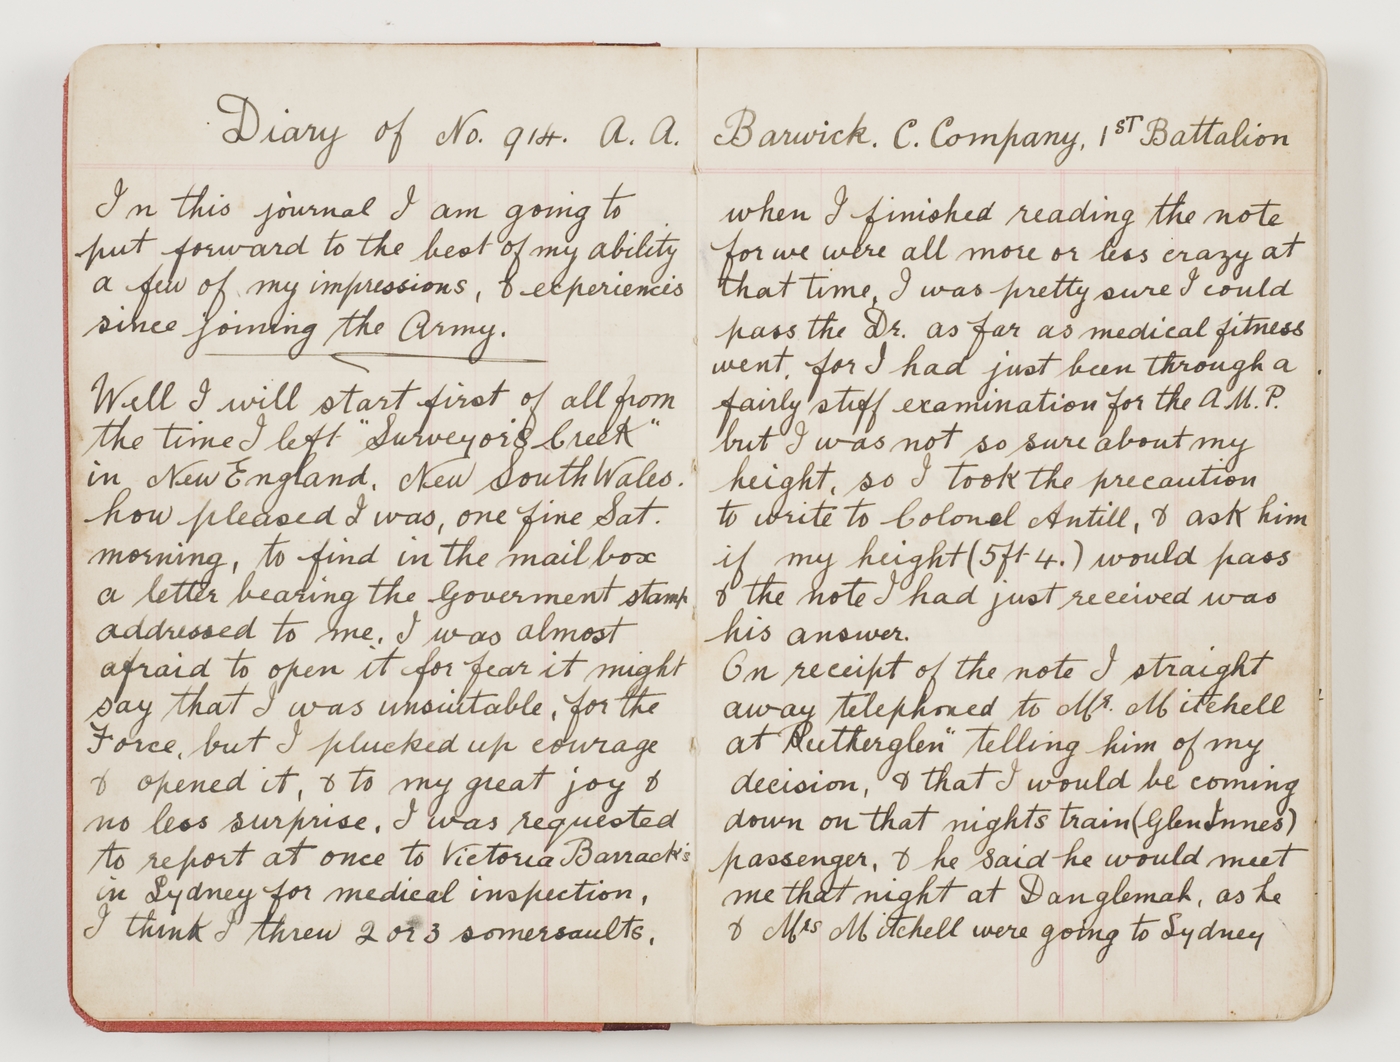 Diary of No. 914. A. A. Barwick. C. Company, 1ST Battalion
In this journal I am going to
put forward to the best of my ability
a few of my impressions, & experiences
since joining the Army.
Well I will start first of all from
the time I left "Surveyor's Creek"
in New England, New South Wales.
how pleased I was, one fine Sat.
morning, to find in the mail box
a letter bearing the Goverment stamp
addressed to me. I was almost
afraid to open it for fear it might
say that I was unsuitable, for the
Force, but I plucked up courage
& opened it, & to my great joy &
no less surprise, I was requested
to report at once to Victoria Barrack's
in Sydney for medical inspection,
I think I threw 2 or 3 somersaults,
when I finished reading the note
for we were all more or less crazy at
that time, I was pretty sure I could
pass the Dr. as far as medical fitness
went, for I had just been through a
fairly stiff examination for the A.M.P.
but I was not so sure about my
height, so I took the precaution
to write to Colonel Antill, & ask him
if my height (5ft 4.) would pass
& the note I had just received was
his answer.
On receipt of the note I straight
away telephoned to Mr. Mitchell
at "Rutherglen" telling him of my
decision, & that I would be coming
down on that nights train (Glen Innes)
passenger, & he said he would meet
me that night at Danglemah, as he
& Mrs Mitchell were going to Sydney